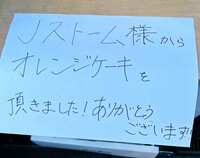 Jストーム様から
オレンジケーキを
頂きました!ありがとう
ございます!